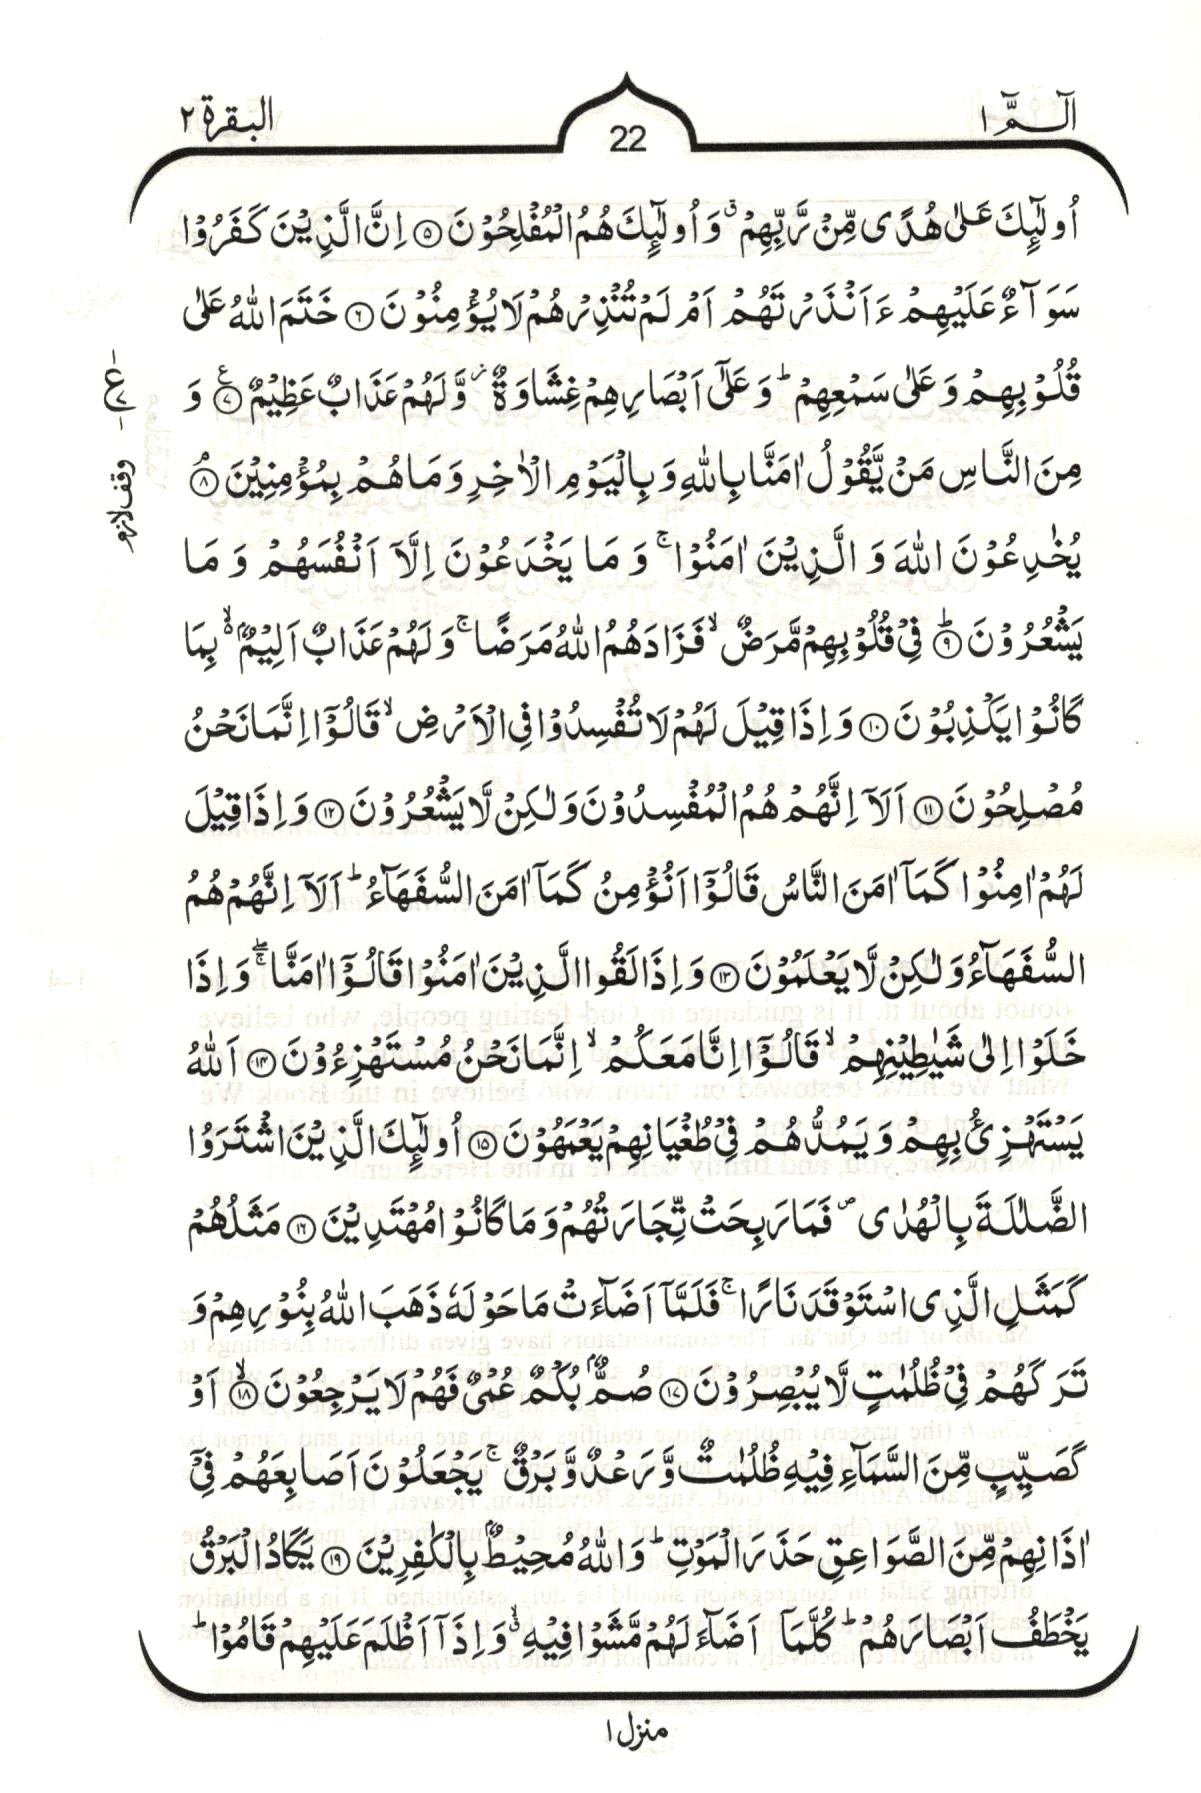 الٓـمّٓ ١
22
البقرة ٢
اُولٰٓئِكَ عَلٰى هُدًى مِّنْ رَّبِّهِمْ ۗ وَاُولٰٓئِكَ هُمُ الْمُفْلِحُوْنَ ۝٥ اِنَّ الَّذِيْنَ كَفَرُوْا
سَوَآءٌ عَلَيْهِمْ ءَاَنْذَرْتَهُمْ اَمْ لَمْ تُنْذِرْهُمْ لَا يُؤْمِنُوْنَ ۝٦ خَتَمَ اللّٰهُ عَلٰى
قُلُوْبِهِمْ وَعَلٰى سَمْعِهِمْ ؕ وَعَلٰٓى اَبْصَارِهِمْ غِشَاوَةٌ ز وَّلَهُمْ عَذَابٌ عَظِيْمٌ ۝٧ وَ
مِنَ النَّاسِ مَنْ يَّقُوْلُ اٰمَنَّا بِاللّٰهِ وَبِالْيَوْمِ الْاٰخِرِ وَمَا هُمْ بِمُؤْمِنِيْنَ ۝٨
يُخٰدِعُوْنَ اللّٰهَ وَ الَّذِيْنَ اٰمَنُوْا ۚ وَ مَا يَخْدَعُوْنَ اِلَّآ اَنْفُسَهُمْ وَ مَا
يَشْعُرُوْنَ ۝٩ؕ فِيْ قُلُوْبِهِمْ مَّرَضٌ ۙ فَزَادَهُمُ اللّٰهُ مَرَضًا ۚ وَلَهُمْ عَذَابٌ اَلِيْمٌۢ ۙ بِمَا
كَانُوْا يَكْذِبُوْنَ ۝١٠ وَاِذَا قِيْلَ لَهُمْ لَا تُفْسِدُوْا فِي الْاَرْضِ ۙ قَالُوْٓا اِنَّمَا نَحْنُ
مُصْلِحُوْنَ ۝١١ اَلَآ اِنَّهُمْ هُمُ الْمُفْسِدُوْنَ وَلٰكِنْ لَّا يَشْعُرُوْنَ ۝١٢ وَاِذَا قِيْلَ
لَهُمْ اٰمِنُوْا كَمَآ اٰمَنَ النَّاسُ قَالُوْٓا اَنُؤْمِنُ كَمَآ اٰمَنَ السُّفَهَآءُ ؕ اَلَآ اِنَّهُمْ هُمُ
السُّفَهَآءُ وَلٰكِنْ لَّا يَعْلَمُوْنَ ۝١٣ وَاِذَا لَقُوا الَّذِيْنَ اٰمَنُوْا قَالُوْٓا اٰمَنَّا ۚۖ وَاِذَا
خَلَوْا اِلٰى شَيٰطِيْنِهِمْ ۙ قَالُوْٓا اِنَّا مَعَكُمْ ۙ اِنَّمَا نَحْنُ مُسْتَهْزِءُوْنَ ۝١٤ اَللّٰهُ
يَسْتَهْزِئُ بِهِمْ وَيَمُدُّهُمْ فِيْ طُغْيَانِهِمْ يَعْمَهُوْنَ ۝١٥ اُولٰٓئِكَ الَّذِيْنَ اشْتَرَوُا
الضَّلٰلَةَ بِالْهُدٰى ۪ فَمَا رَبِحَتْ تِّجَارَتُهُمْ وَمَا كَانُوْا مُهْتَدِيْنَ ۝١٦ مَثَلُهُمْ
كَمَثَلِ الَّذِى اسْتَوْقَدَ نَارًا ۚ فَلَمَّآ اَضَآءَتْ مَا حَوْلَهٗ ذَهَبَ اللّٰهُ بِنُوْرِهِمْ وَ
تَرَكَهُمْ فِيْ ظُلُمٰتٍ لَّا يُبْصِرُوْنَ ۝١٧ صُمٌّۢ بُكْمٌ عُمْيٌ فَهُمْ لَا يَرْجِعُوْنَ ۝١٨ۙ اَوْ
كَصَيِّبٍ مِّنَ السَّمَآءِ فِيْهِ ظُلُمٰتٌ وَّرَعْدٌ وَّبَرْقٌ ۚ يَجْعَلُوْنَ اَصَابِعَهُمْ فِيْٓ
اٰذَانِهِمْ مِّنَ الصَّوَاعِقِ حَذَرَ الْمَوْتِ ؕ وَاللّٰهُ مُحِيْطٌۢ بِالْكٰفِرِيْنَ ۝١٩ يَكَادُ الْبَرْقُ
يَخْطَفُ اَبْصَارَهُمْ ؕ كُلَّمَآ اَضَآءَ لَهُمْ مَّشَوْا فِيْهِ ۙۗ وَاِذَآ اَظْلَمَ عَلَيْهِمْ قَامُوْا ؕ
ع
وقف لازم
منزل ١